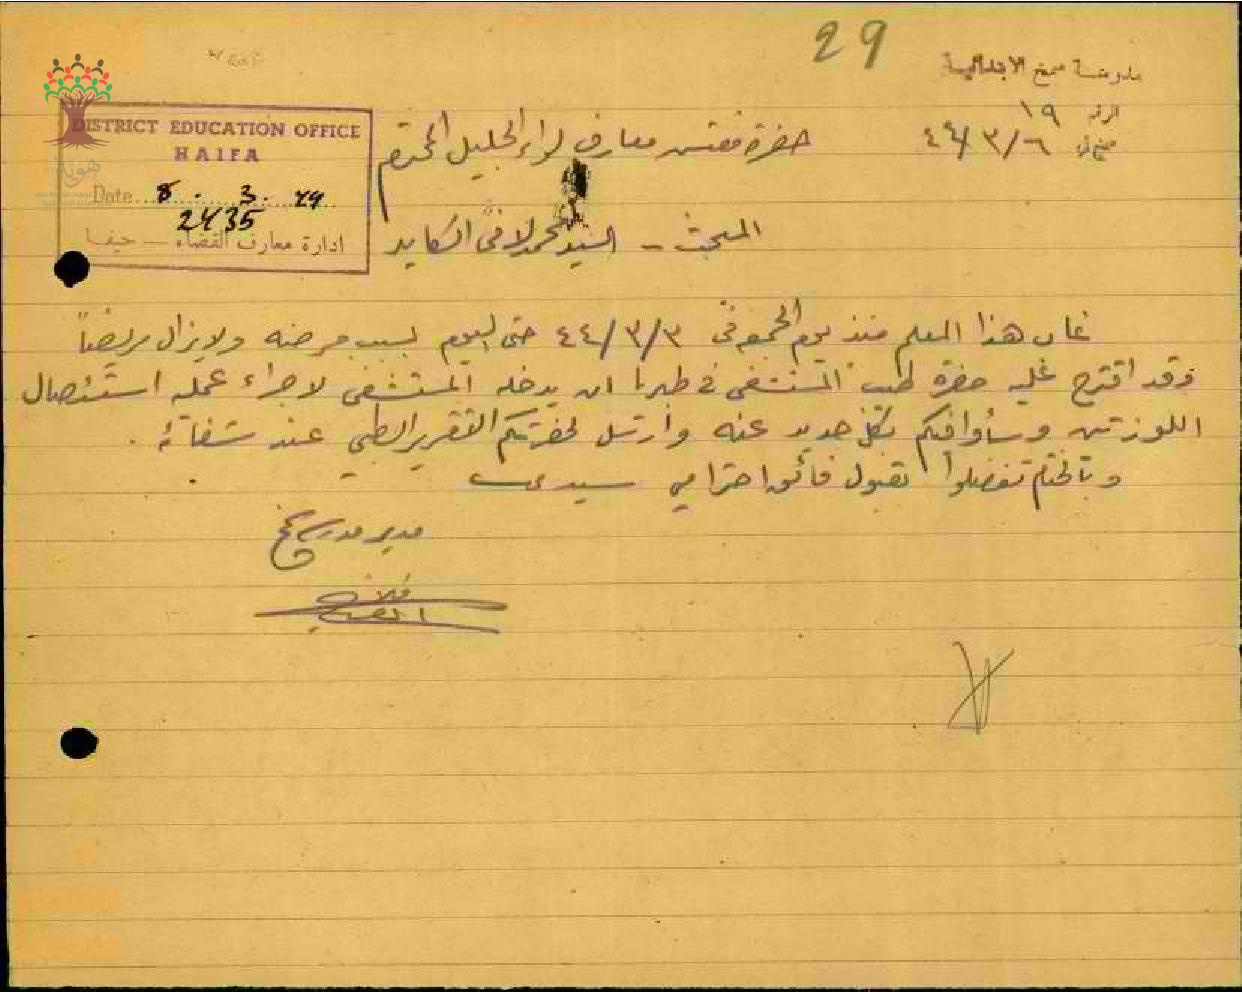 29
مدرسة سمخ الابتدائية
الرقم ١٩
سمخ في ٦/٣/٤٤
DISTRICT EDUCATION OFFICE
HAIFA
Date 8. 3. 44
2435
ادارة معارف القضاء — حيفا
هوية
حضرة مفتش معارف لواء الجليل المحترم
المبحث - السيد محمد لافي الكايد
غاب هذا المعلم منذ يوم الجمعة في ٣/٣/٤٤ حتى اليوم بسبب مرضه ولا يزال مريضاً
وقد اقترح عليه حضرة طبيب المستشفى في طبريا ان يدخله المستشفى لاجراء عملية استئصال
اللوزتين وسأوافيكم بكل جديد عنه وارسل لحضرتكم التقرير الطبي عند شفائه .
وبالختام تفضلوا بقبول فائق احترامي سيدي
مدير مدرسة سمخ